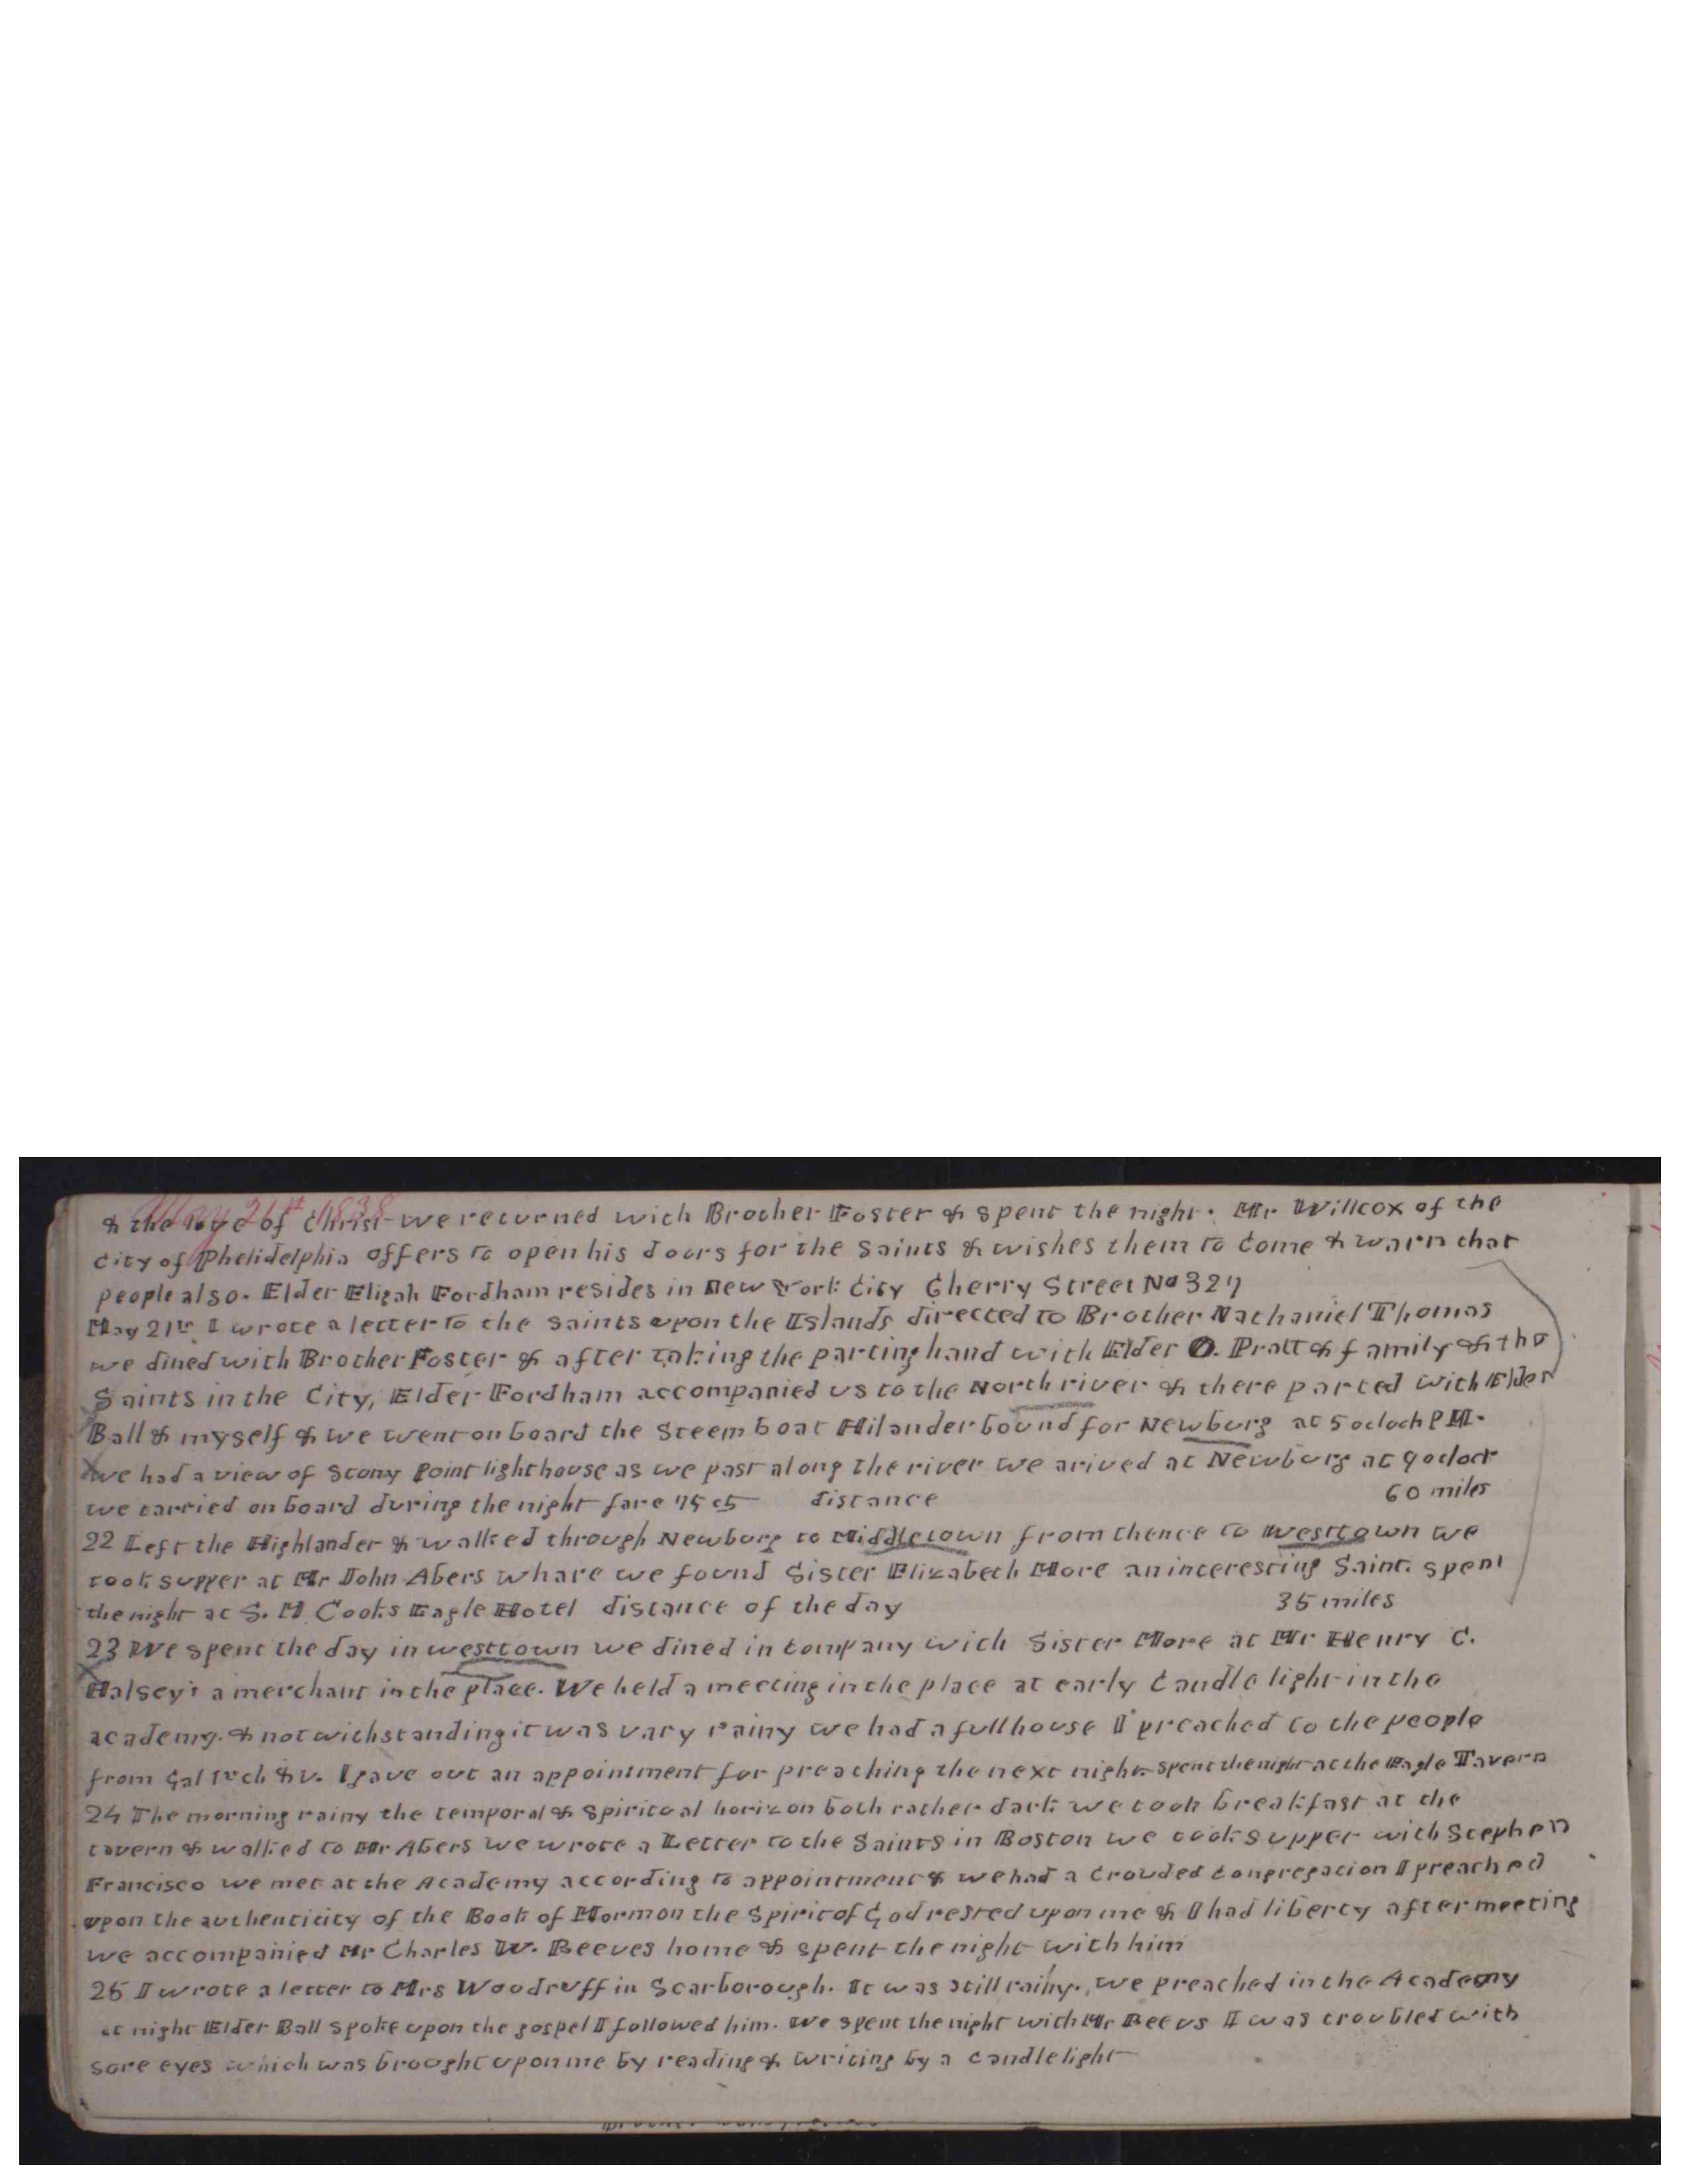 May 21st 1838
& the love of Christ we returned with Brother Foster & spent the night. Mr Willcox of the
City of Phelidelphia offers to open his doors for the Saints & wishes them to Come & warn that
people also. Elder Eligah Fordham resides in New York City Cherry Street No 327
May 21st I wrote a letter to the Saints upon the Islands directed to Brother Nathaniel Thomas
we dined with Brother Foster & after taking the parting hand with Elder O. Pratt & family & the
Saints in the City, Elder Fordham accompanied us to the North river & there parted with Elder
Ball & myself & we went on board the Steem boat Hilander bound for Newburg at 5 oclock P M.
we had a view of Stony Point lighthouse as we past along the river we arived at Newburg at 9 oclock
we tarried on board during the night fare 75 cts distance 60 miles
22 Left the Highlander & walked through Newburg to Middletown from thence to Westtown we
took supper at Mr John Abers whare we found Sister Elizabeth More an interesting Saint. spent
the night at S. M Cooks Eagle Hotel distance of the day 35 miles
23 We spent the day in westtown we dined in Company with Sister More at Mr Henry C.
Halsey's a merchant in the place. We held a meeting in the place at early Candle light in the
academy. & notwithstanding it was vary rainy we had a full house I preached to the people
from Gal 1st ch 8 v. I gave out an appointment for preaching the next night. spent the night at the Eagle Tavern
24 The morning rainy the temporal & spiritual horizon both rather dark we took breakfast at the
tavern & walked to Mr Abers we wrote a Letter to the Saints in Boston we took supper with Stephen
Francisco we met at the Academy according to appointment & we had a Crouded Congregation I preached
upon the authenticity of the Book of Mormon the Spirit of God rested upon me & I had liberty after meeting
we accompanied Mr Charles W. Reeves home & spent the night with him
25 I wrote a letter to Mrs Woodruff in Scarborough. It was still rainy. we preached in the Academy
at night Elder Ball spoke upon the gospel I followed him. We spent the night with Mr Reevs I was troubled with
sore eyes which was brought upon me by reading & writing by a Candle light